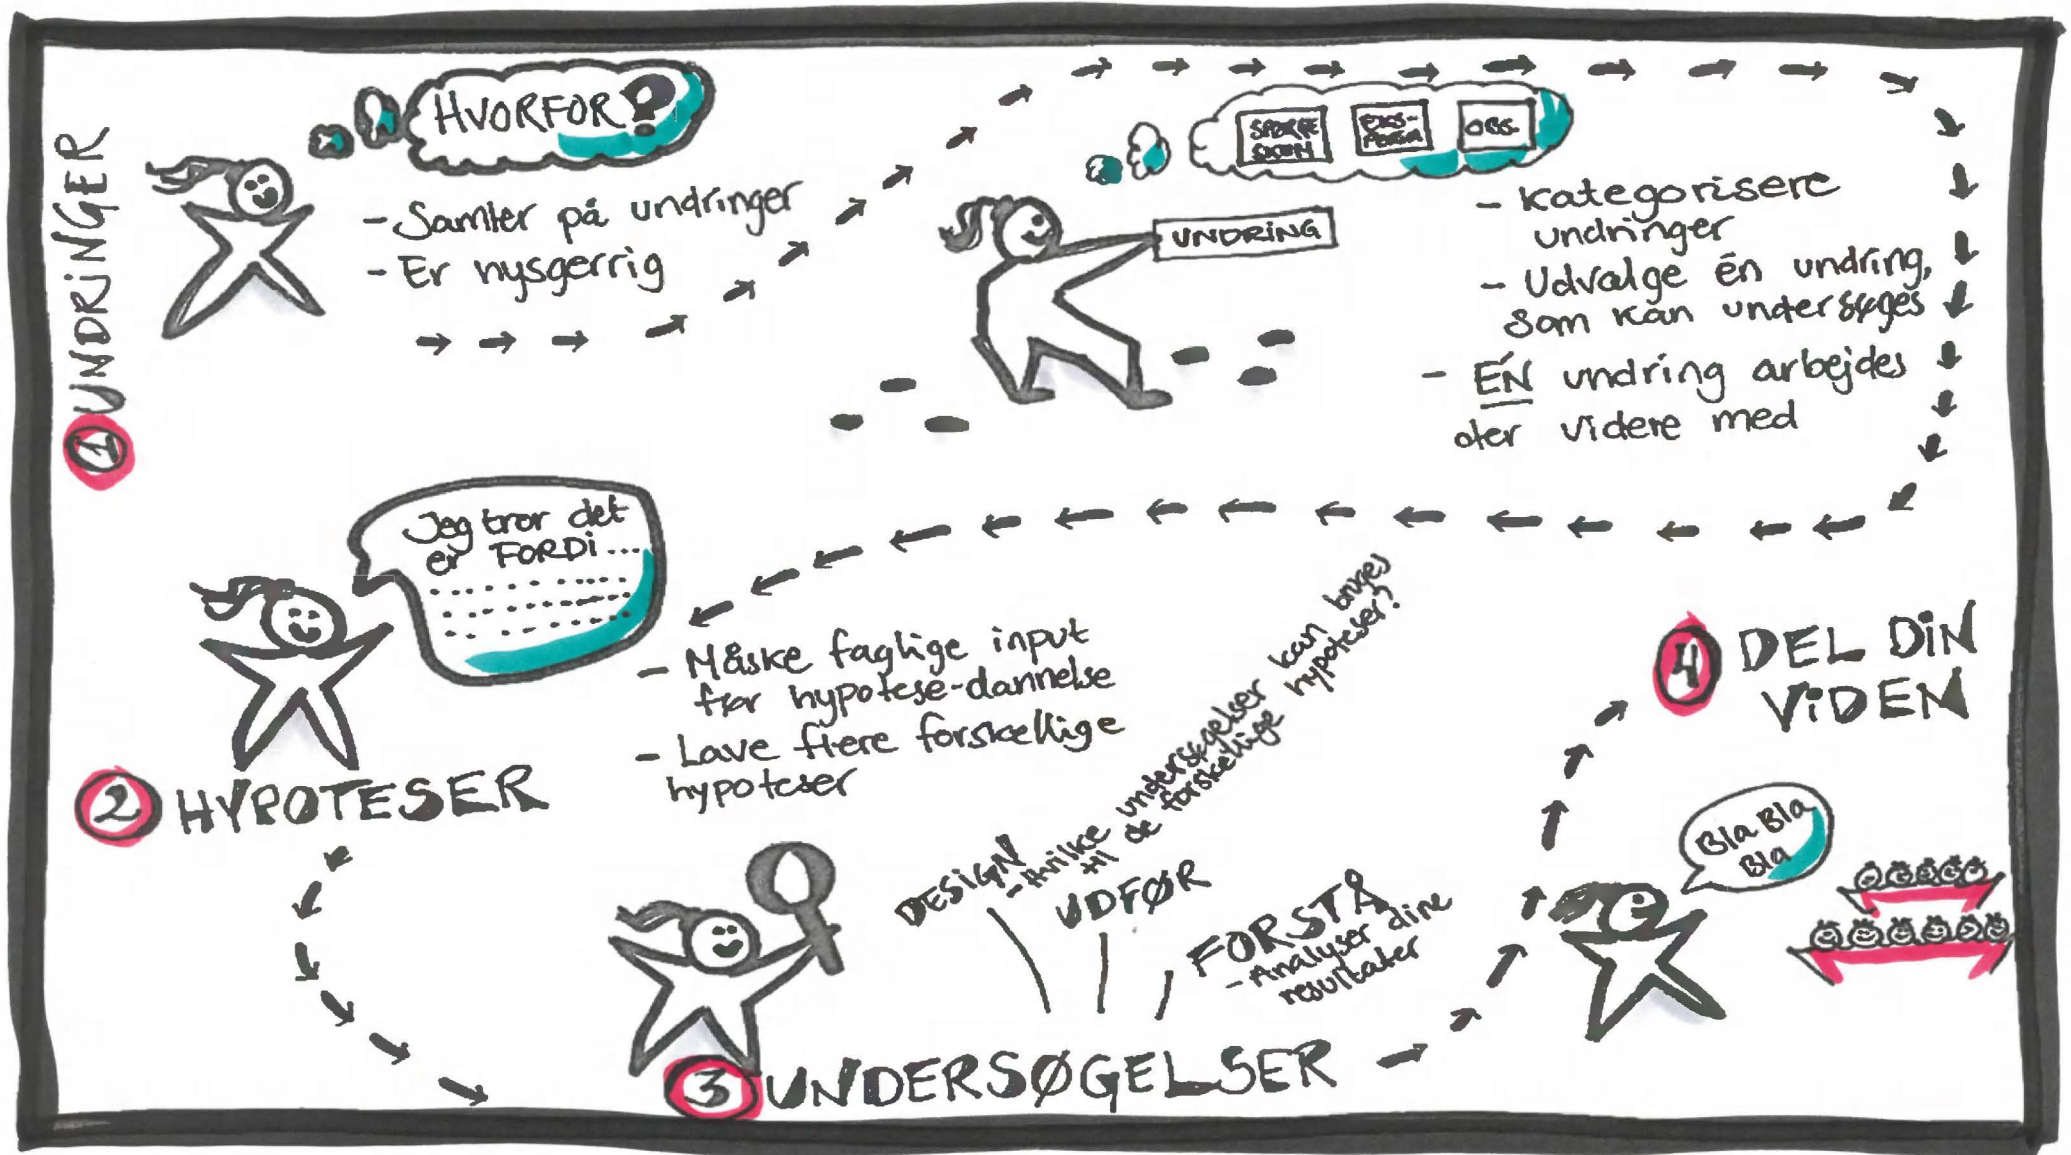 1 UNDRINGER
HVORFOR?
- Samler på undringer
- Er nysgerrig
SPØRGE
SKEM
EKS-
PERIM
OBS.
UNDRING
- Kategorisere
undringer
- Udvælge én undring,
som kan undersøges
- ÉN undring arbejdes
der videre med
Jeg tror det
er FORDI...
2 HYPOTESER
- Måske faglige input
før hypotese-dannelse
- Lave flere forskellige
hypoteser
DESIGN
- Hvilke undersøgelser kan bruges
til de forskellige hypoteser?
UDFØR
FORSTÅ
- Analyser dine
resultater
3 UNDERSØGELSER
4 DEL DIN
VIDEN
Bla Bla
Bla